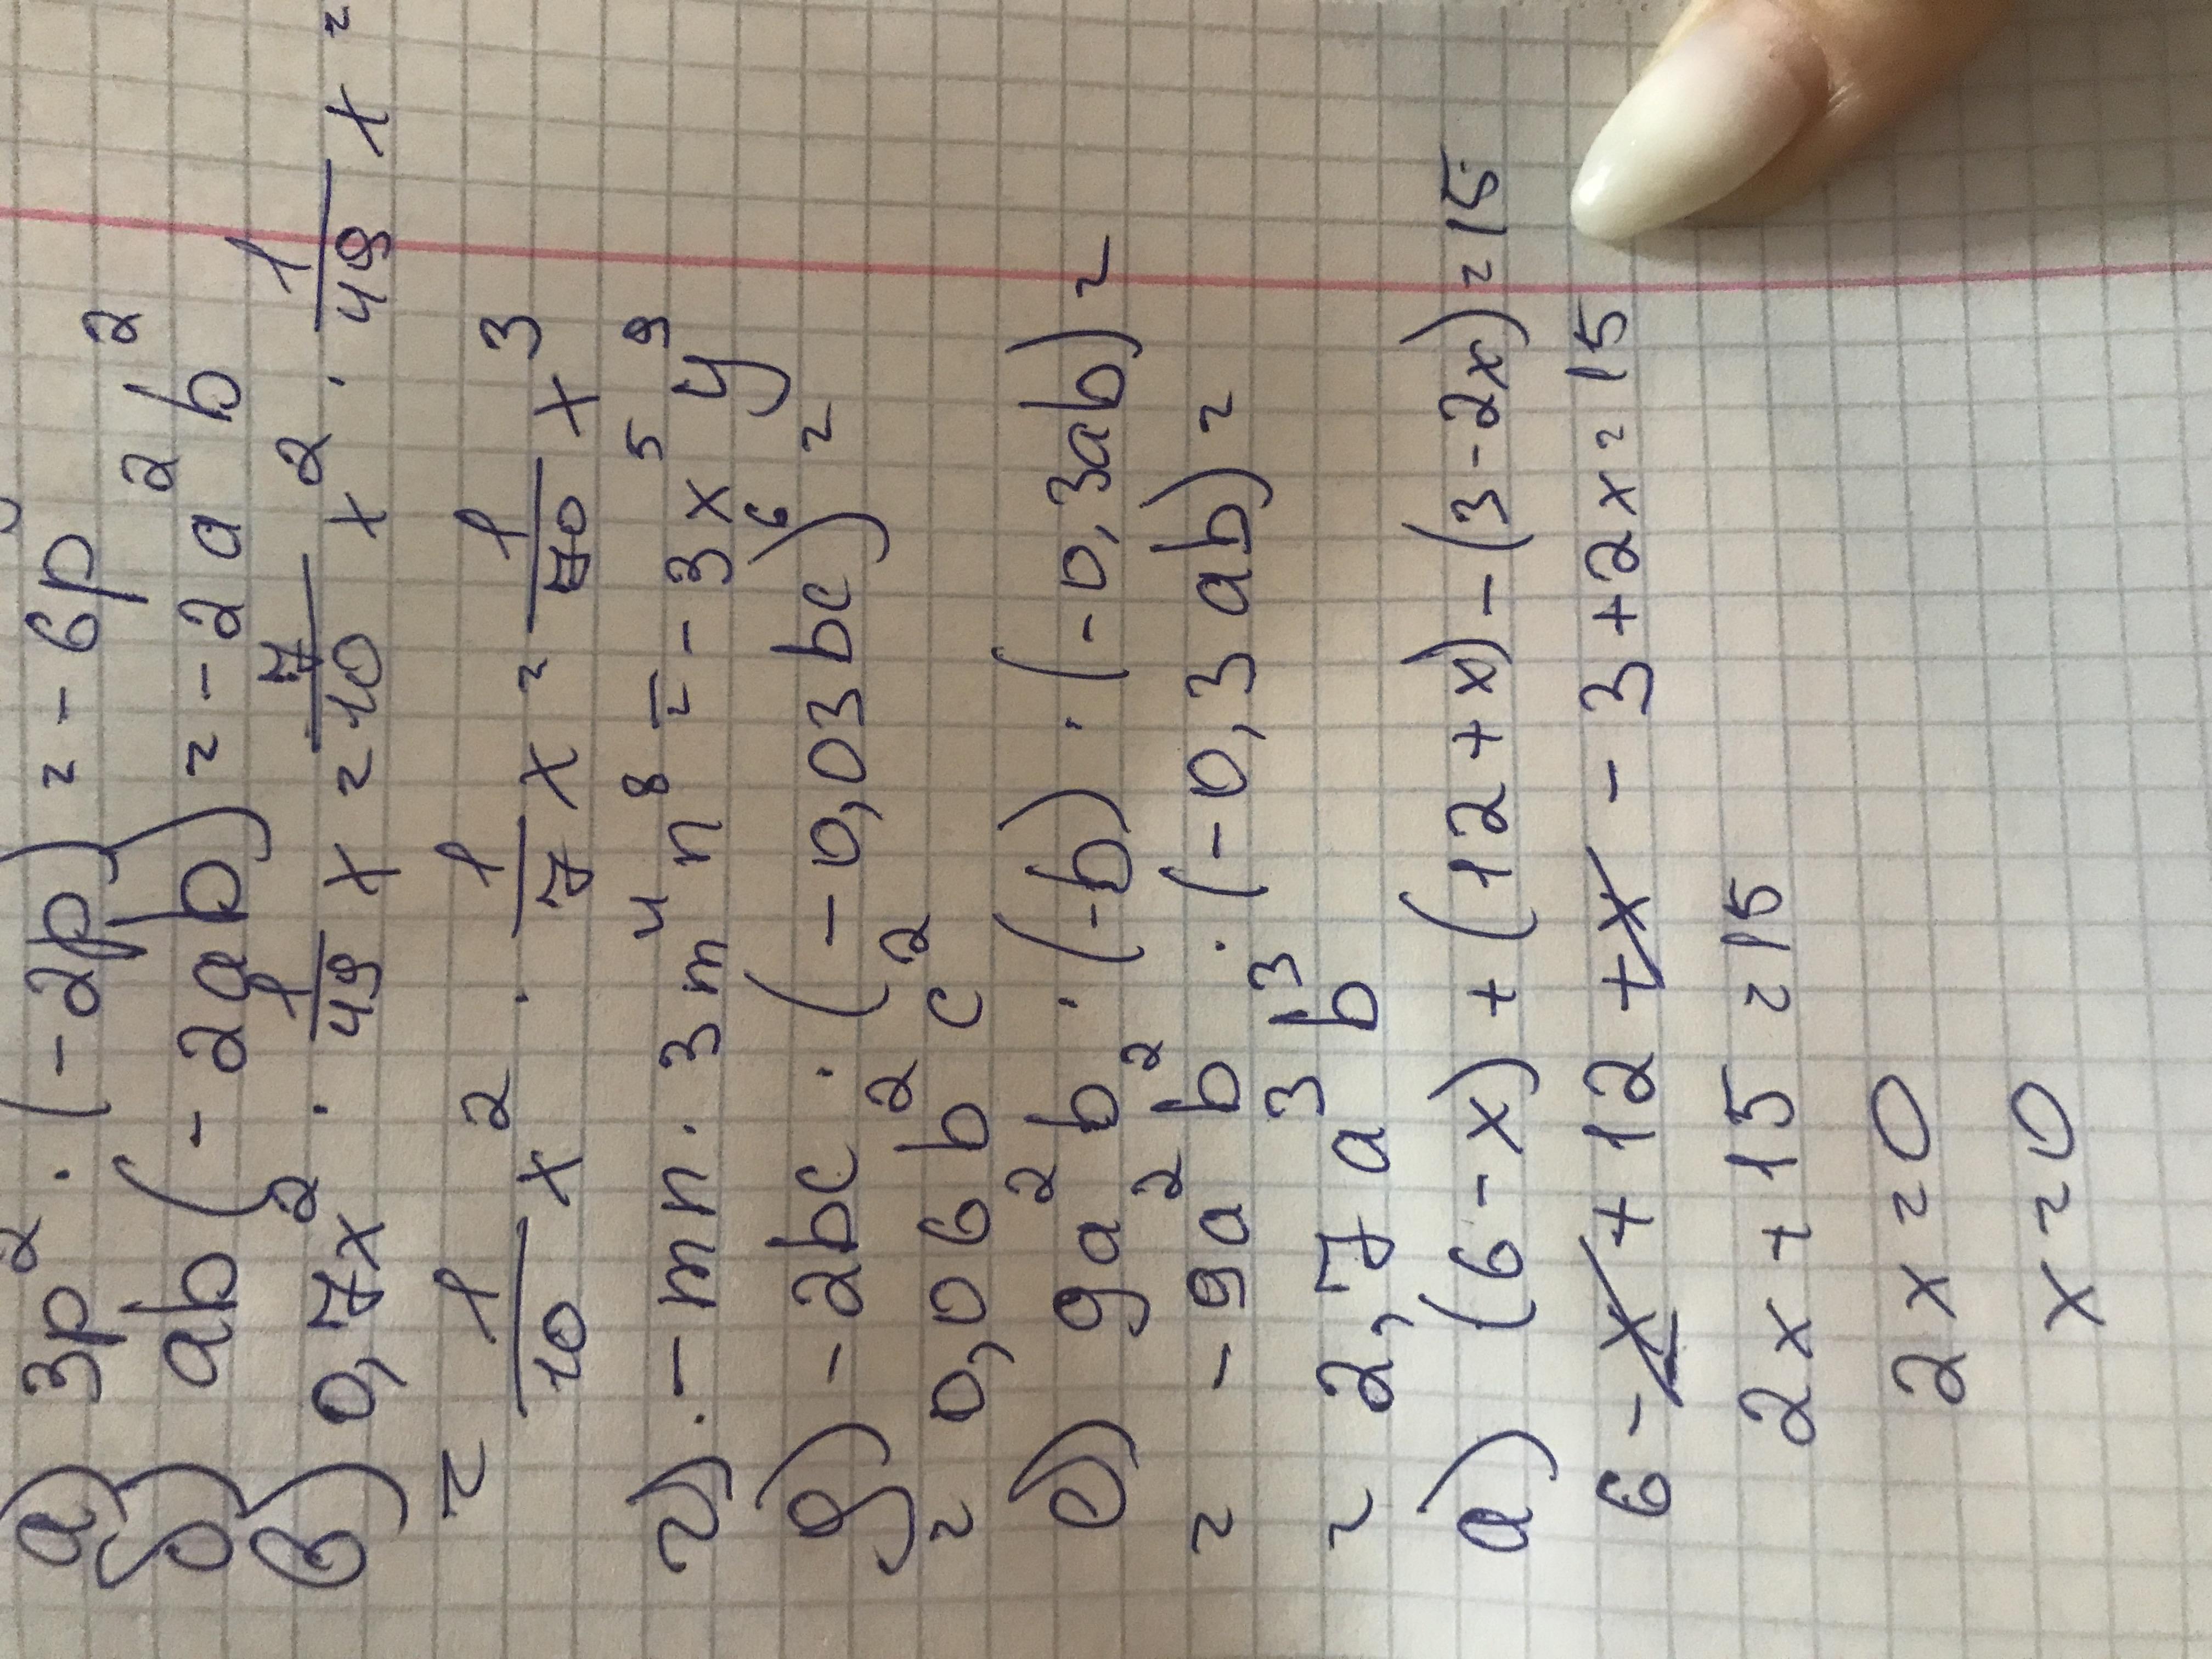 а) 3p² · (-2p) = -6p
б) ab(-2ab) = -2a²b²
в) 0,7x² · 1/49 x = 7/10 x² · 1/49 x =
= 1/10 x² · 1/7 x = 1/70 x³
г) -mn · 3m⁴n⁸ = -3x⁵y⁹
д) -2bc · (-0,03bc)⁶ =
= 0,06b²c²
е) 9a²b² · (-b) · (-0,3ab) =
= -9a²b · (-0,3ab) =
= 2,7a³b³
а) (6-x) + (12+x) - (3-2x) = 15
6 - x + 12 + x - 3 + 2x = 15
2x + 15 = 15
2x = 0
x = 0